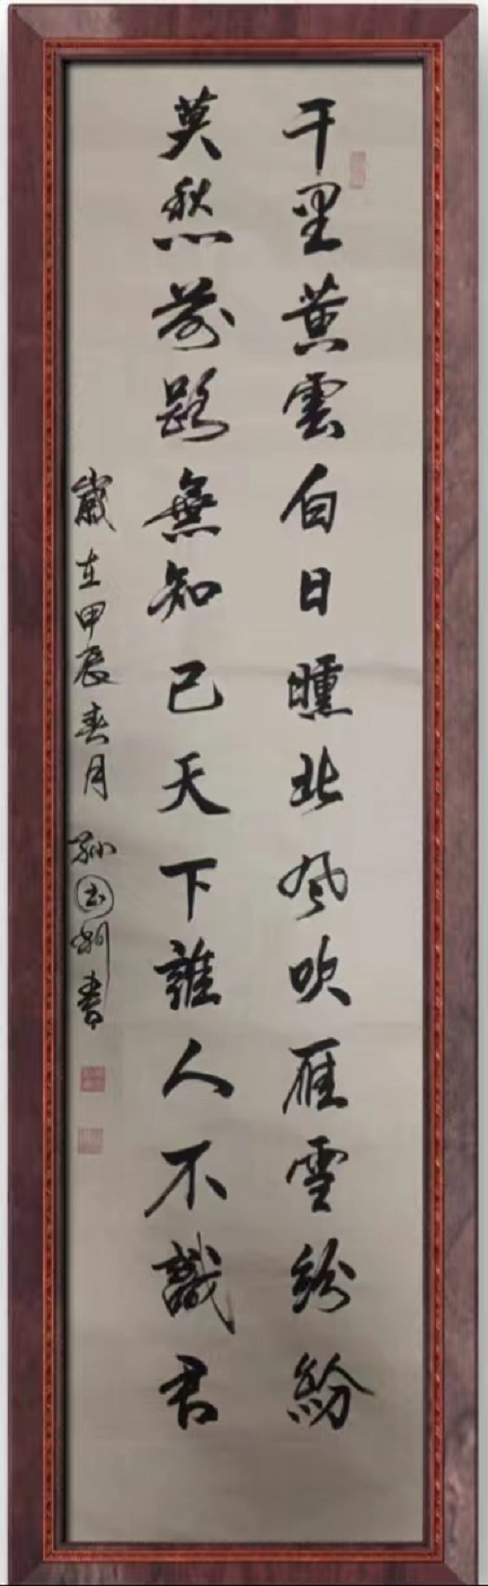 千里黄雲白日曛北風吹雁雪紛紛
莫愁前路無知己天下誰人不識君
歲在甲辰春月 孙国書